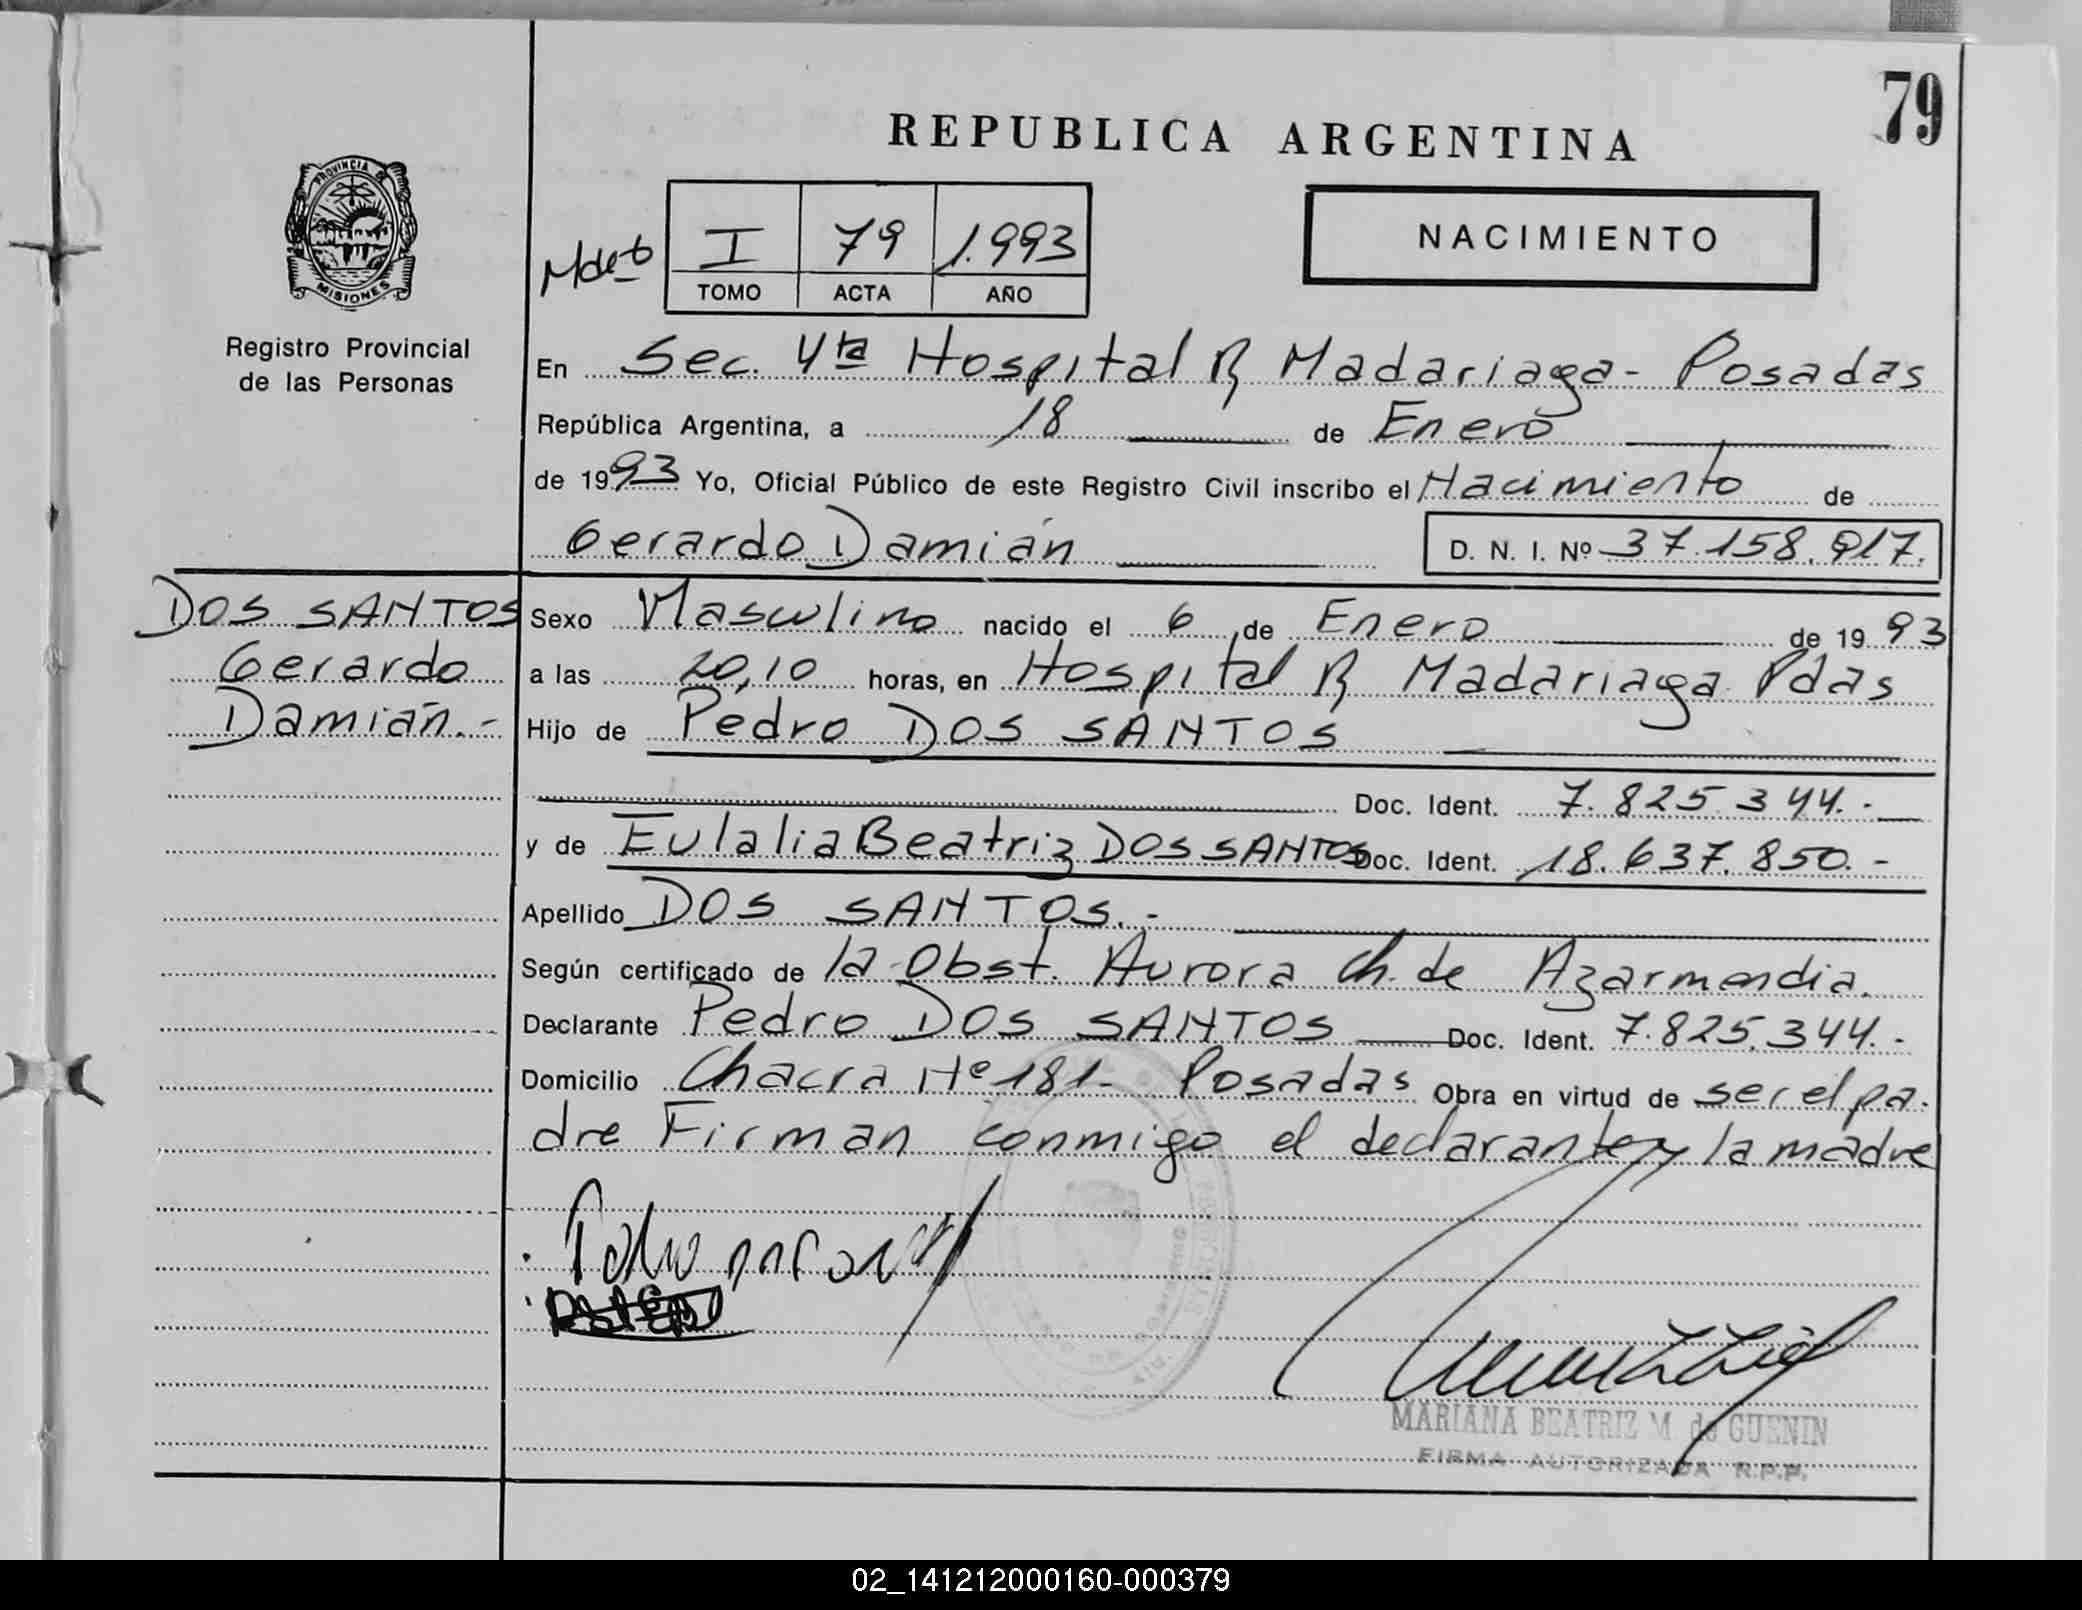 79
REPUBLICA ARGENTINA
PROVINCIA DE
MISIONES
Registro Provincial
de las Personas
I 79 1.993
TOMO ACTA AÑO
NACIMIENTO
En Sec. 4ta Hospital R Madariaga - Posadas
República Argentina, a 18 de Enero
de 1993 Yo, Oficial Público de este Registro Civil inscribo el Nacimiento de
Gerardo Damián D. N. I. Nº 37.158.917.
DOS SANTOS
Gerardo
Damián.-
Sexo Masculino nacido el 6 de Enero de 1993
a las 20,10 horas, en Hospital R Madariaga Pdas
Hijo de Pedro DOS SANTOS
Doc. Ident. 7.825.344.-
y de Eulalia Beatriz DOS SANTOS Doc. Ident. 18.637.850.-
Apellido DOS SANTOS.-
Según certificado de la Obst. Aurora Ch. de Azarmendia.
Declarante Pedro DOS SANTOS Doc. Ident. 7.825.344.-
Domicilio Chacra Nº 181- Posadas Obra en virtud de ser el pa-
dre Firman conmigo el declarante y la madre
MARIANA BEATRIZ M. de GUENIN
FIRMA AUTORIZADA R.P.P.
02_141212000160-000379